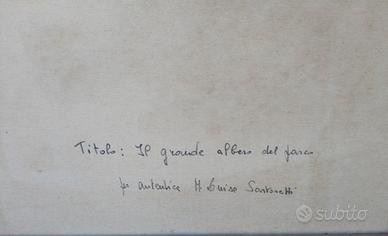 Titolo: Il grande albero del parco
per autentica M. Luisa Santoretti
subito